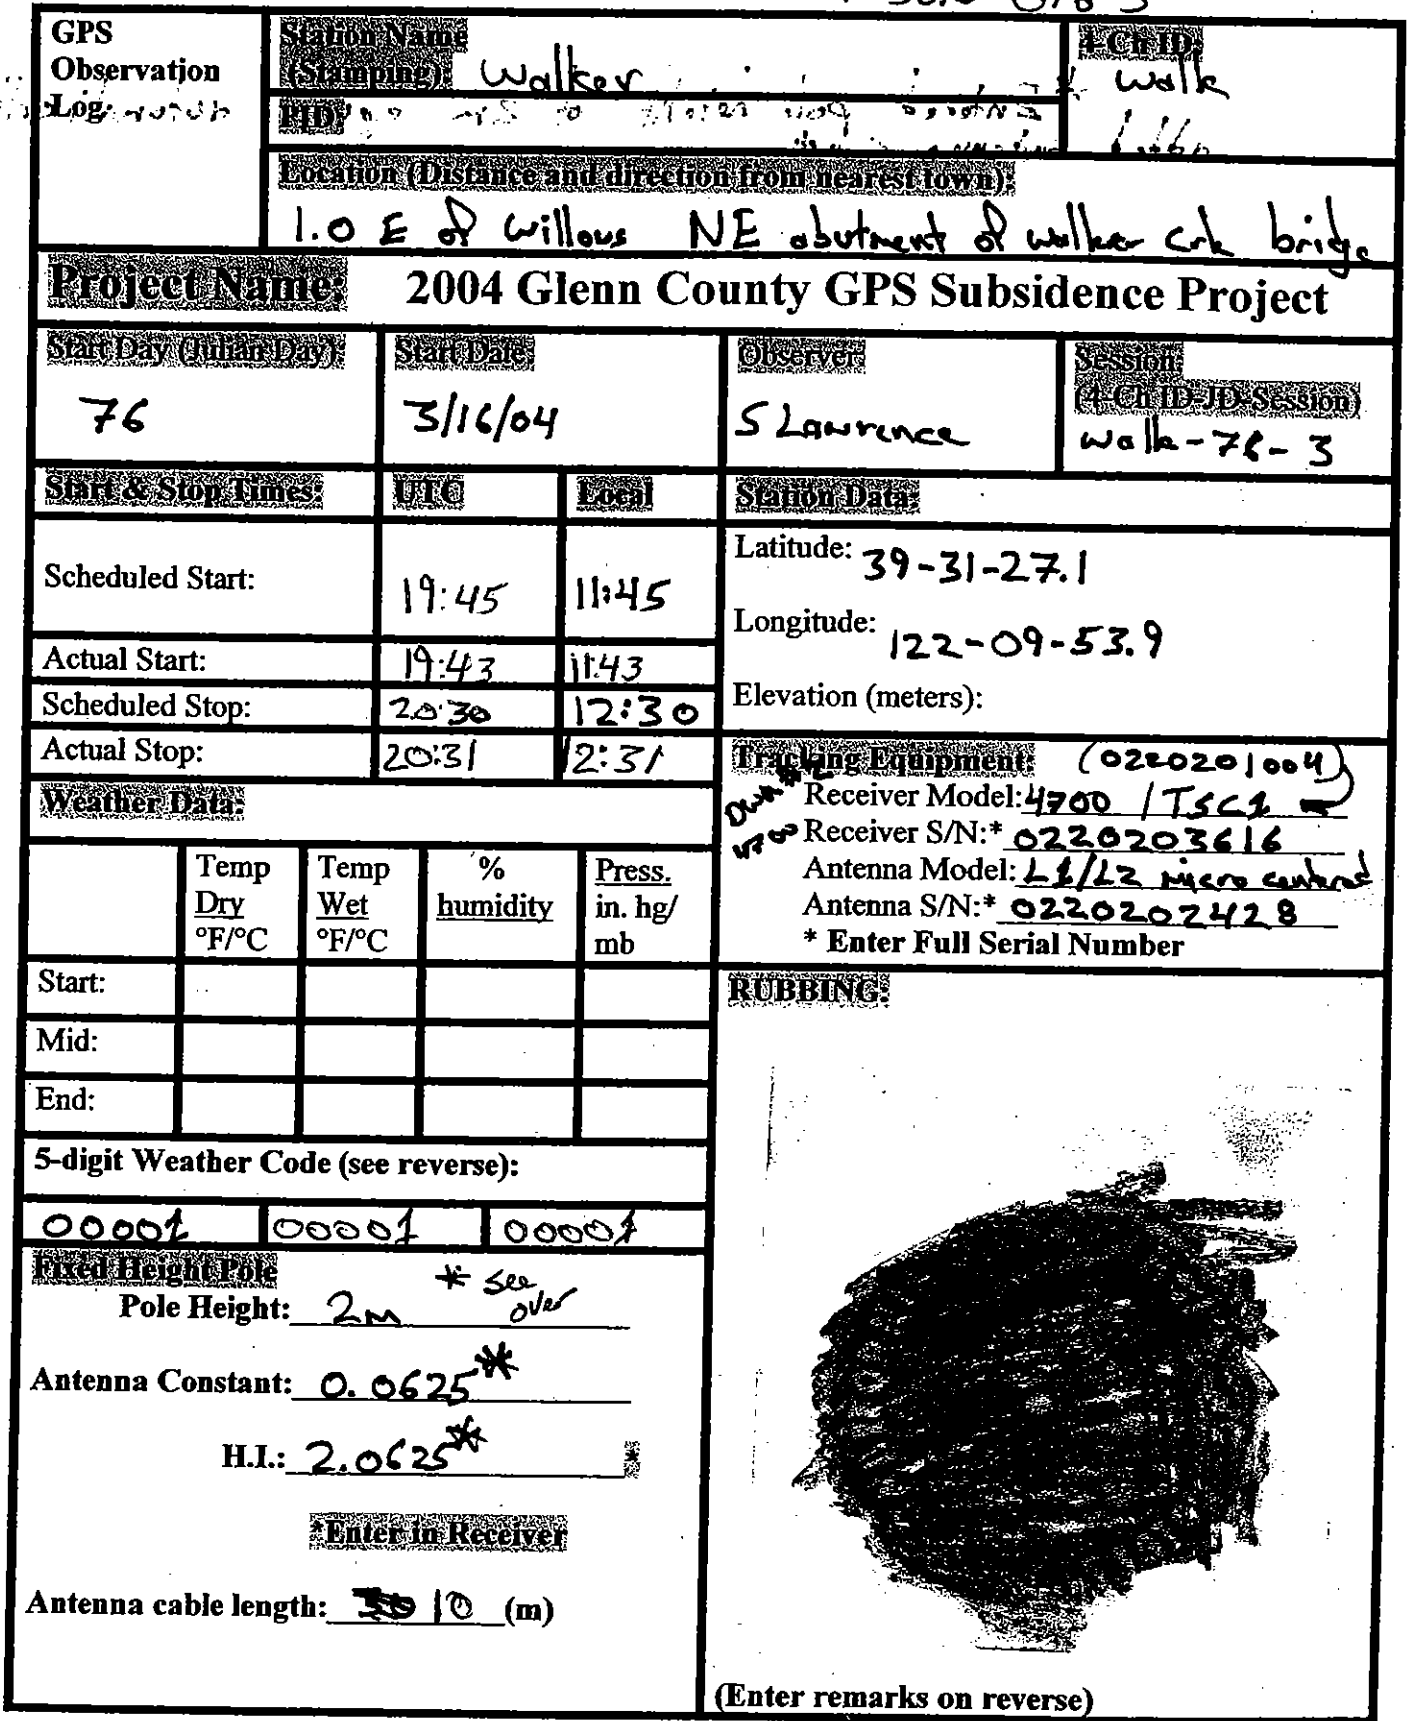 GPS
Observation
Log:
Station Name
(Stamping): Walker
4-Ch ID:
walk
PID:
Location (Distance and direction from nearest town):
1.0 E of Willows NE abutment of walker crk bridge
Project Name: 2004 Glenn County GPS Subsidence Project
Start Day (Julian Day):
76
Start Date:
3/16/04
Observer
S Lawrence
Session:
(4-Ch ID-JD-Session)
walk-76-3
Start & Stop Times: UTC Local
Scheduled Start: 19:45 11:45
Actual Start: 19:43 11:43
Scheduled Stop: 20:30 12:30
Actual Stop: 20:31 12:31
Station Data:
Latitude: 39-31-27.1
Longitude: 122-09-53.9
Elevation (meters):
Tracking Equipment: (0220201004)
Receiver Model: 4700 / TSC1
4700
Receiver S/N:* 0220203616
Antenna Model: L1/L2 micro centered
Antenna S/N:* 0220202428
* Enter Full Serial Number
Weather Data:
Temp
Dry
°F/°C
Temp
Wet
°F/°C
%
humidity
Press.
in. hg/
mb
Start:
Mid:
End:
5-digit Weather Code (see reverse):
00001 00001 00001
Fixed Height Pole
* see
over
Pole Height: 2m
Antenna Constant: 0.0625*
H.I.: 2.0625* *
*Enter in Receiver
Antenna cable length: 10 (m)
RUBBING:
(Enter remarks on reverse)